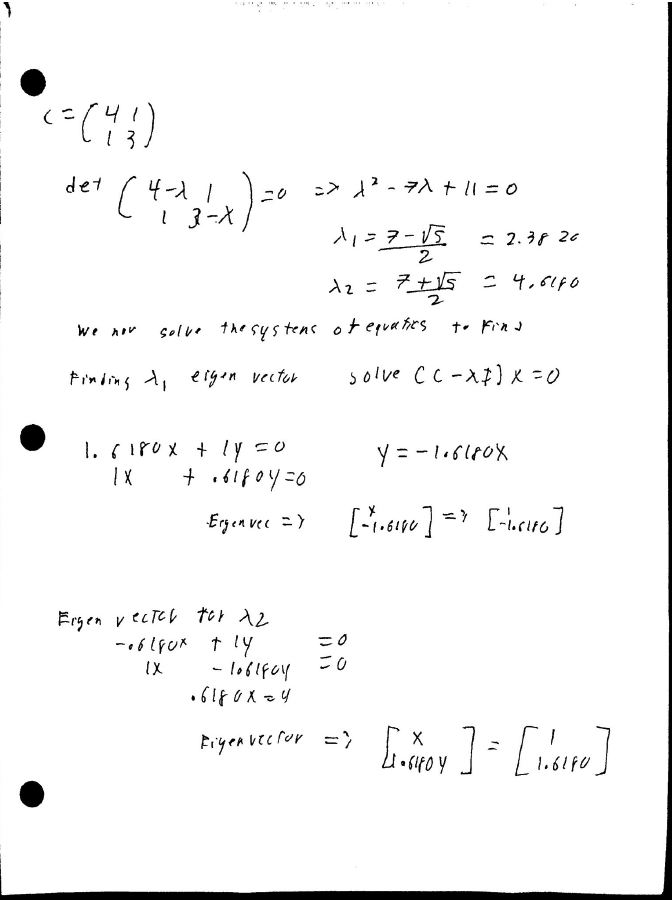 C = (4 1
1 3)
det (4-λ 1
1 3-λ) = 0 => λ² - 7λ + 11 = 0
λ1 = 7-√5 / 2 = 2.3820
λ2 = 7+√5 / 2 = 4.6180
We now solve the systems of equatics to Find
Finding λ1 eigen vector solve (C-λI)X=0
1.6180x + 1y = 0 y = -1.6180x
1x + .6180y=0
Eigenvec => [x
-1.6180] => [1
-1.6180]
Eigen vector for λ2
-.6180x + 1y = 0
1x - 1.6180y = 0
.6180x = y
Eigenvector => [x
1.6180y] = [1
1.6180]